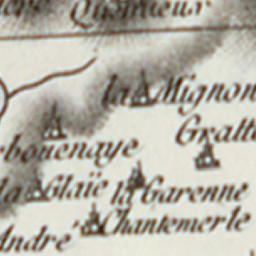 la Mignon
Gratt
bouenaye
la Glaïe la Garenne
Chantemerle
André